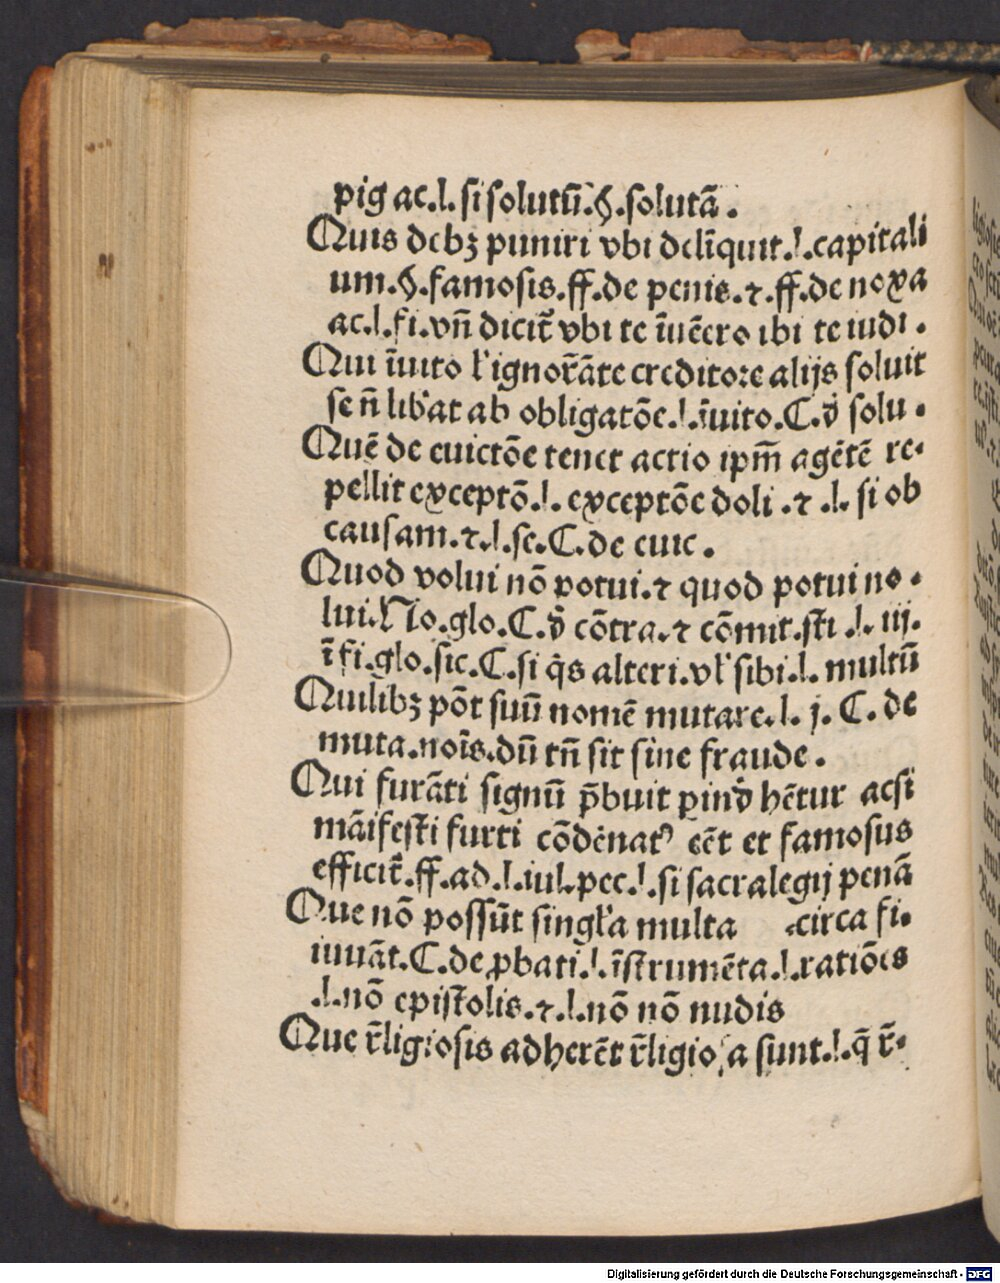 pig ac.l. si solutū.§.solutā.
Quis debꝫ puniri vbi delīquit.l.capitali
um.§.famosis.ff.de penis.⁊.ff.de noxa
ac.l.fi.vn̄ dicit̄ vbi te īuēero ibi te iudi.
Qui īuito l' ignorāte creditore alijs soluit
se n̄ lib'at ab obligatōe.l.īuito.C.d' solu.
Quē de euictōe tenet actio ipm̄ agētē re-
pellit exceptō.l. exceptōe doli .⁊ .l. si ob
causam.⁊.l.se.C.de euic.
Quod volui nō potui.⁊ quod potui no-
lui.No.glo.C.d' cōtra.⁊ cōmit.sti .l. iij.
ī fi.glo.sic.C.si q̇s alteri.vl' sibi.l. multū
Quilibꝫ pōt suū nomē mutare.l. j. C. de
muta.noīs.dū tn̄ sit sine fraude.
Qui furāti signū p̄buit ꝑind' hētur acsi
māifesti furti cōdēnatꝰ eēt et famosus
efficit̄.ff.ad.l.iul.pec.l.si sacralegij penā
Que nō possūt singl'a multa circa fi.
iuuāt.C.de ꝓbati.l.īstrumēta.l.ratiōes
.l.nō epistolis.⁊.l.nō nō nudis
Que r̄ligiosis adherēt r̄ligiosa sunt.l.q̄ r̄-
Digitalisierung gefördert durch die Deutsche Forschungsgemeinschaft - DFG